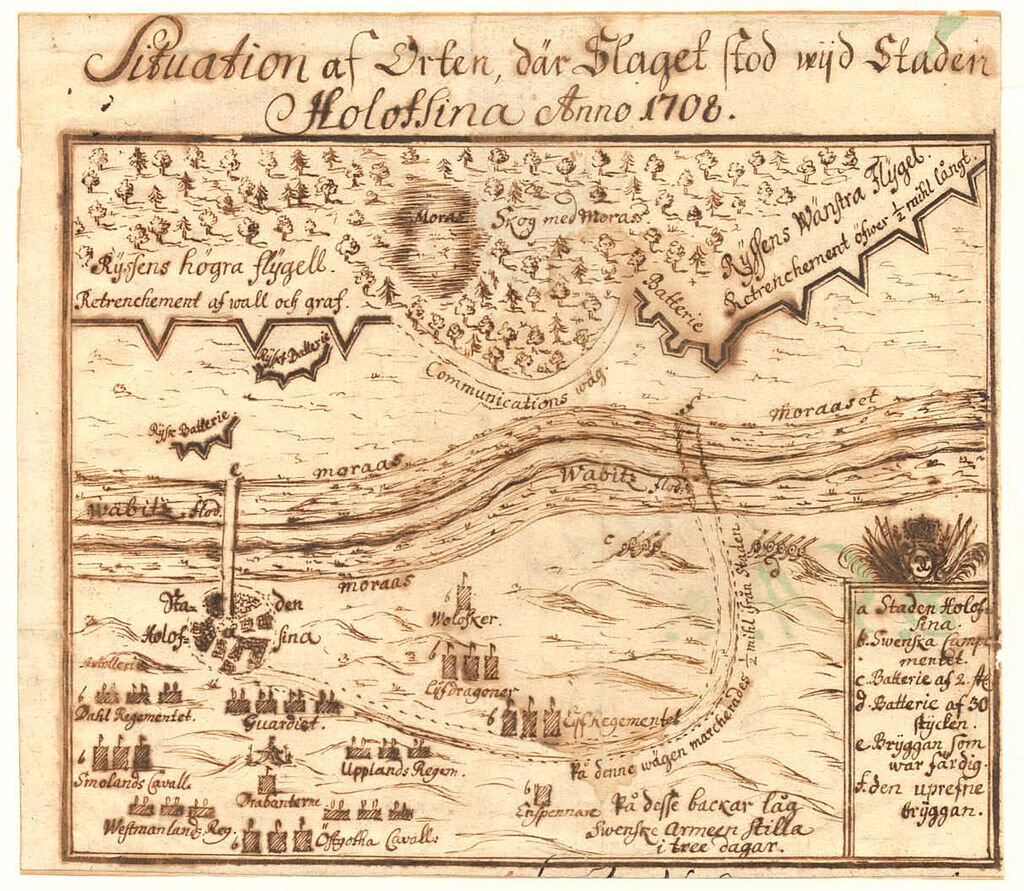 Situation af Orten, där Slaget stod wijd Staden
Holofsina Anno 1708.
Moras
Skog med Moras
Rÿssens högra flÿgell.
Retrenchement af wall och graf.
Rÿsk Batterie
Rÿsk Batterie
Batterie
Rÿssens Wänstra Flÿgel.
Retrenchement öfwer ½ mihl långt.
Communications wäg
moraas
Moraaset
Wabitz flod.
Wabitz flod.
e
moraas
c
d
Sta- den
Holof- sina
Wolosker.
Artollerie
b
Dahl Regementet.
Guardiet.
b
Lifdragoner
b
Lifregementet
b
Smolands Cavall.
Upplands Regem.
Drabanterne
Westmanland. Reg.
b
Östgotha Cavall.
b
Enspennare
På denne wägen marcherades ½ mihl från Staden
På desse backar låg
Swenske Armeen stilla
i tree dagar.
a Staden Holof-
sina.
b. Swenska Campe
mentet.
c. Batterie af 2. st
d. Batterie af 30
stÿcken.
e. Brÿggan som
war färdig.
f. den uprefne
brÿggan.